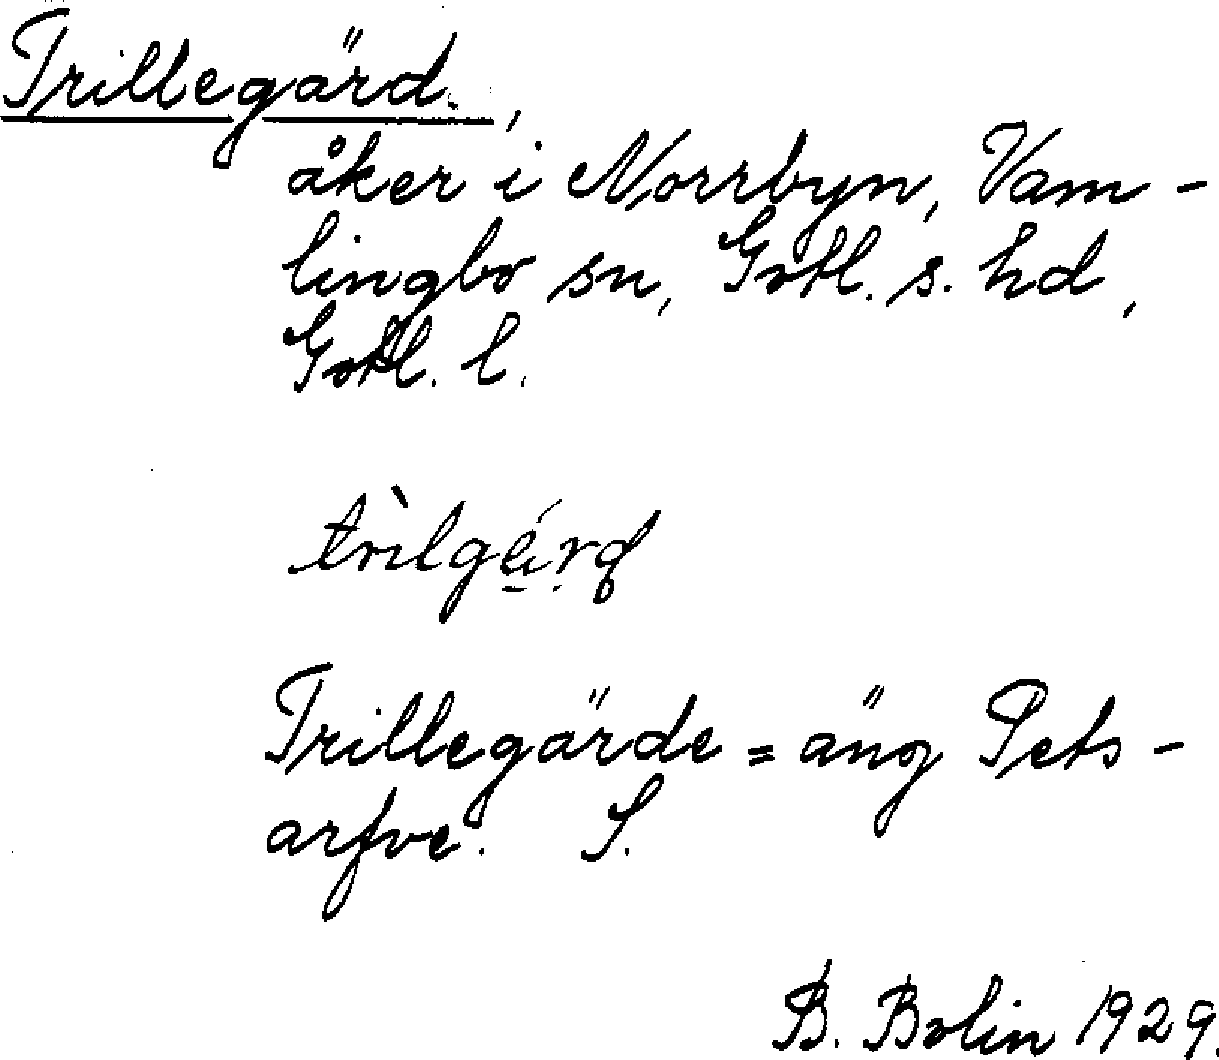 Trillegärd.,
åker i Norrbyn, Vam-
lingbo sn, Gotl. s. hd,
Gotl. l.
Trillegärde = äng Pets-
arfve. S.
B. Bolin 1929.